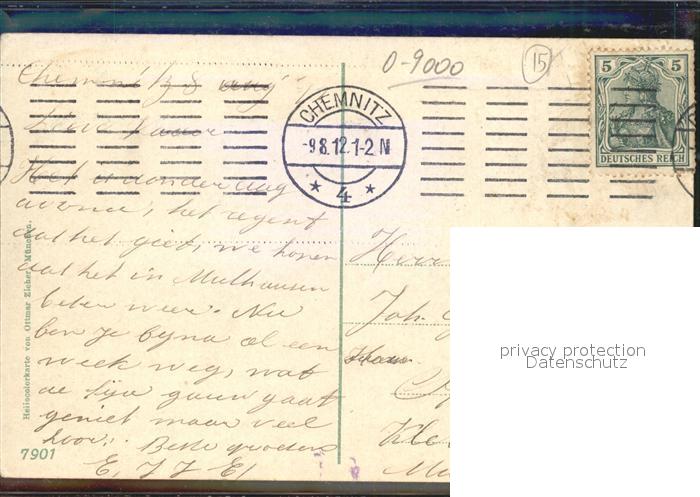 0-9000
15
5 5
DEUTSCHES REICH
CHEMNITZ
-98.12.1-2N
* 4 *
Chemnitz 8 aug
Het is donderdag
avond, het regent
dat het giet, we hopen
dat het in Mulhausen
beter weer. Nu
ben je byna al een
week weg, wat
de tijd gauw gaat
geniet maar veel
hoor. Beste groeten
E, J J E
Herrn
Joh.
Mu
Heliocolorkarte von Ottmar Zieher, München.
7901
privacy protection
Datenschutz